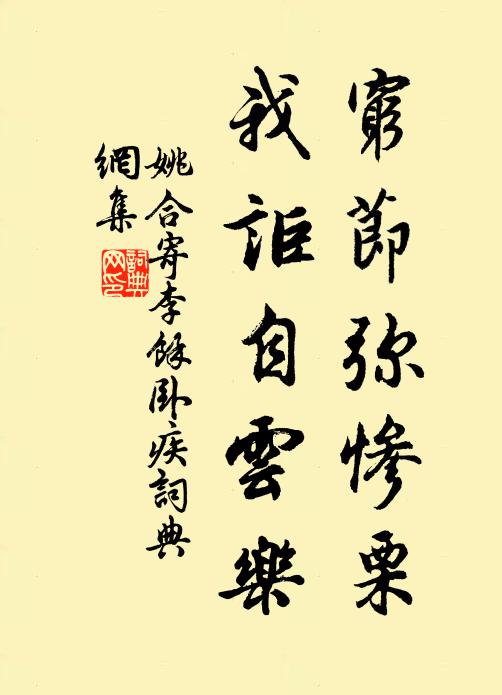 窮節彌慘栗
我詎自雲樂
姚合寄李餘臥疾詞典
網集
詞典
网印